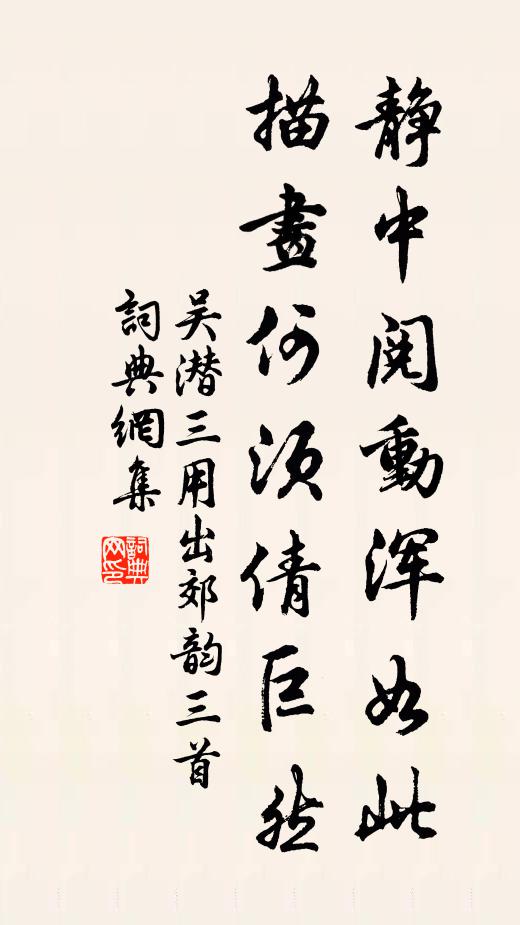 静中阅動渾如此
描畫何須倩巨然
吴潜三用出郊韵三首
詞典網集
詞典网印